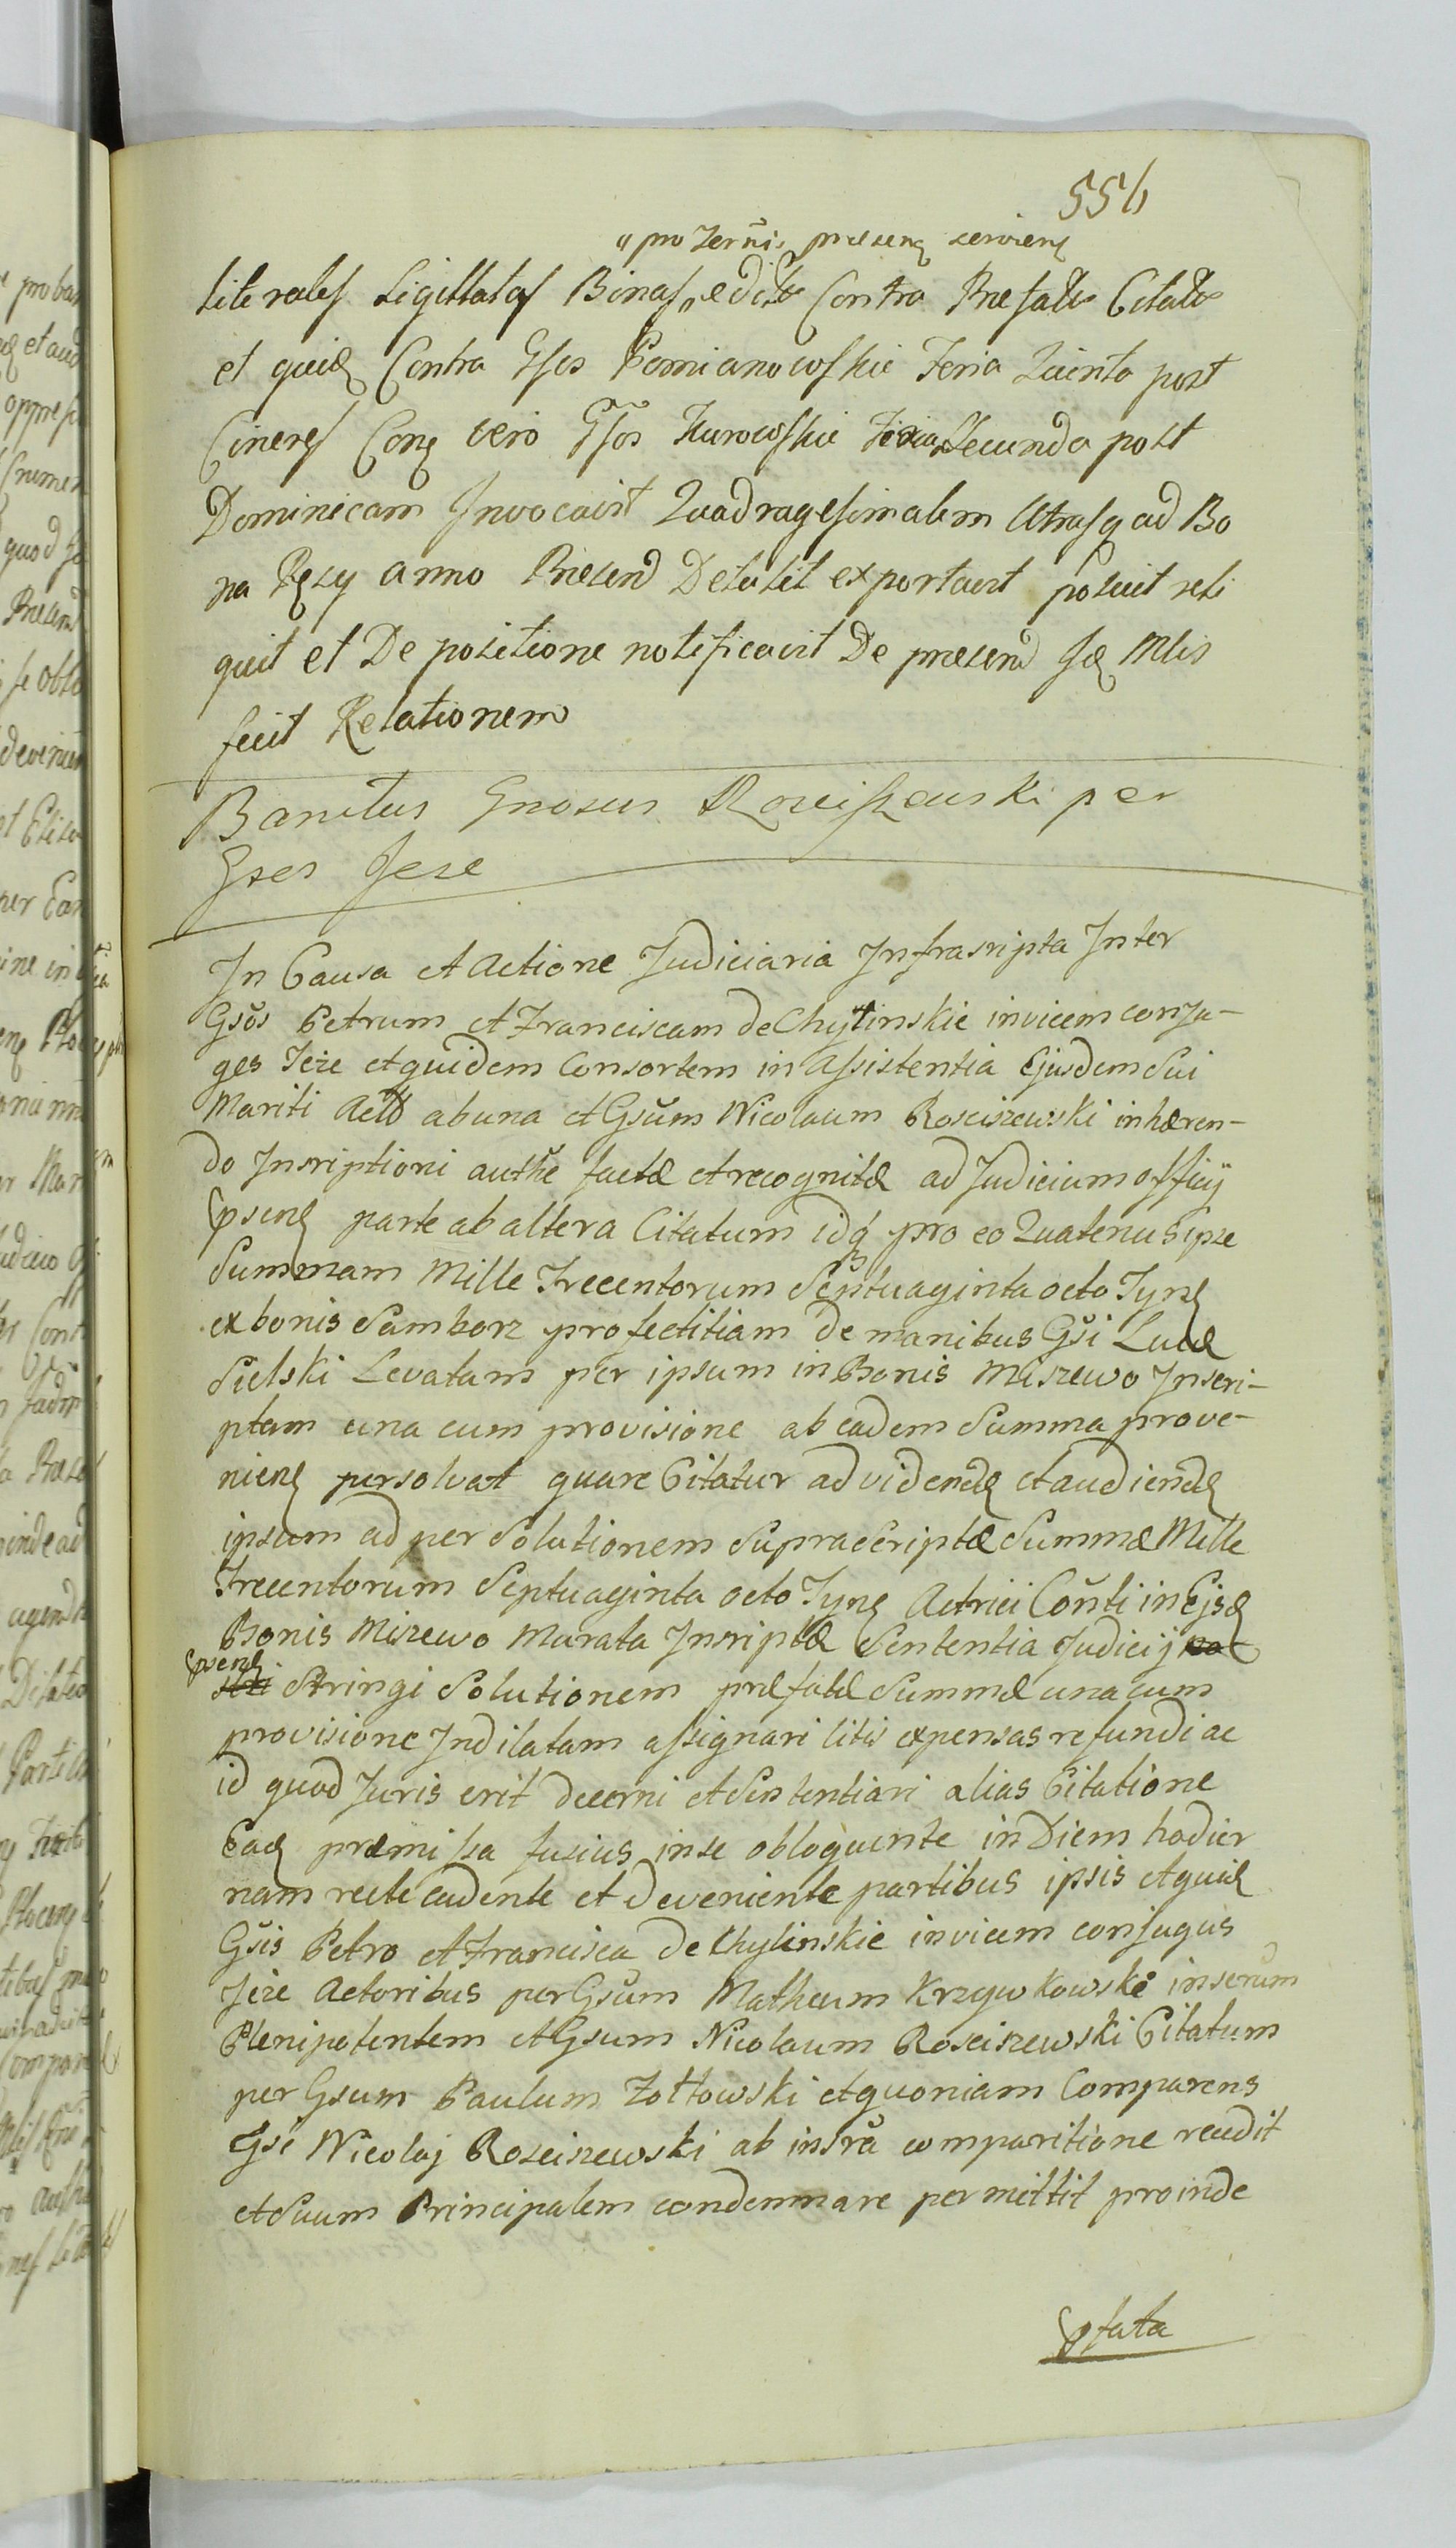 556
"pro Terñis præsenę servienę
literales Sigillatas Binas "edictas Contra Præfatos Citatos
et quidę Contra Gsos Pomianowskie Feria Quinta post
Cineres Conę vero Gsos Kurowskie Feria Secunda post
Dominicam Invocavit Quadragesimalem Utrasq ad Bo
na Ręzy anno Præsend Detulit exportavit posuit reli
quit et De positione notificavit De præsend Jæ Mlis
fecit Relationem
Banitus Gnosus Rosciszewski per
Gsos Jeże
In Causa et Actione Judiciaria Infrascripta Inter
Gsos Petrum et Franciscam de Chylinskie invicem conju-
ges Jeże et quidem Consortem in Assistentia Ejusdem Sui
Mariti Acto ab una et Gsum Nicolaum Rosciszewski inhæren-
do Inscriptioni authe factæ et recognitæ ad Judicium officÿ
psenę parte ab altera Citatum idq pro eo Quatenus ipse
Summam Mille Trecentorum Septuaginta octo Tynę
ex bonis Samborz profectitiam de manibus Gsi Lucæ
Sielski Levatam per ipsum in Bonis Miszewo Inscri-
ptam una cum provisione ab eadem Summa prove-
nienę persolvat quare Citatur ad videndę et audiendę
ipsum ad per Solutionem Supra Scriptæ Summæ Mille
Trecentorum Septuaginta octo Tynę Actrici Consti in Ejsdę
Bonis Miszewo Murata Inscriptæ Sententia Judicij
psenę
Stringi Solutionem præfatæ Summæ una cum
provisione Indilatam assignari litis expensas refundi ac
id quod Juris erit decerni et Sententiari alias Citatione
Eadę præmissa fusius in se obloquente in Diem hodier
nam recte cadente et deveniente partibus ipsis et quidę
Gsis Petro et Francisca de Chylinskie invicem conjugus
Jeże Actoribus per Gsum Matheum Krzywkowski inserum
Plenipotentem et Gsum Nicolaum Rosciszewski Citatum
per Gsum Paulum Żołtowski et quoniam Comparens
Gsi Nicolaj Rosciszewski ab insra comparitione recedit
et Suum Principalem condemnare permittit proinde
pfata